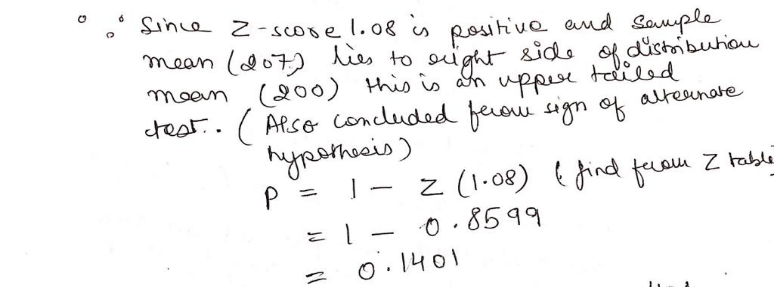 ∵ Since Z-score 1.08 is positive and Sample
mean (207) lies to right side of distribution
mean (200) this is an upper tailed
test. (Also concluded from sign of alternate
hypothesis)
P = 1 - Z (1.08) (find from Z table
= 1 - 0.8599
= 0.1401